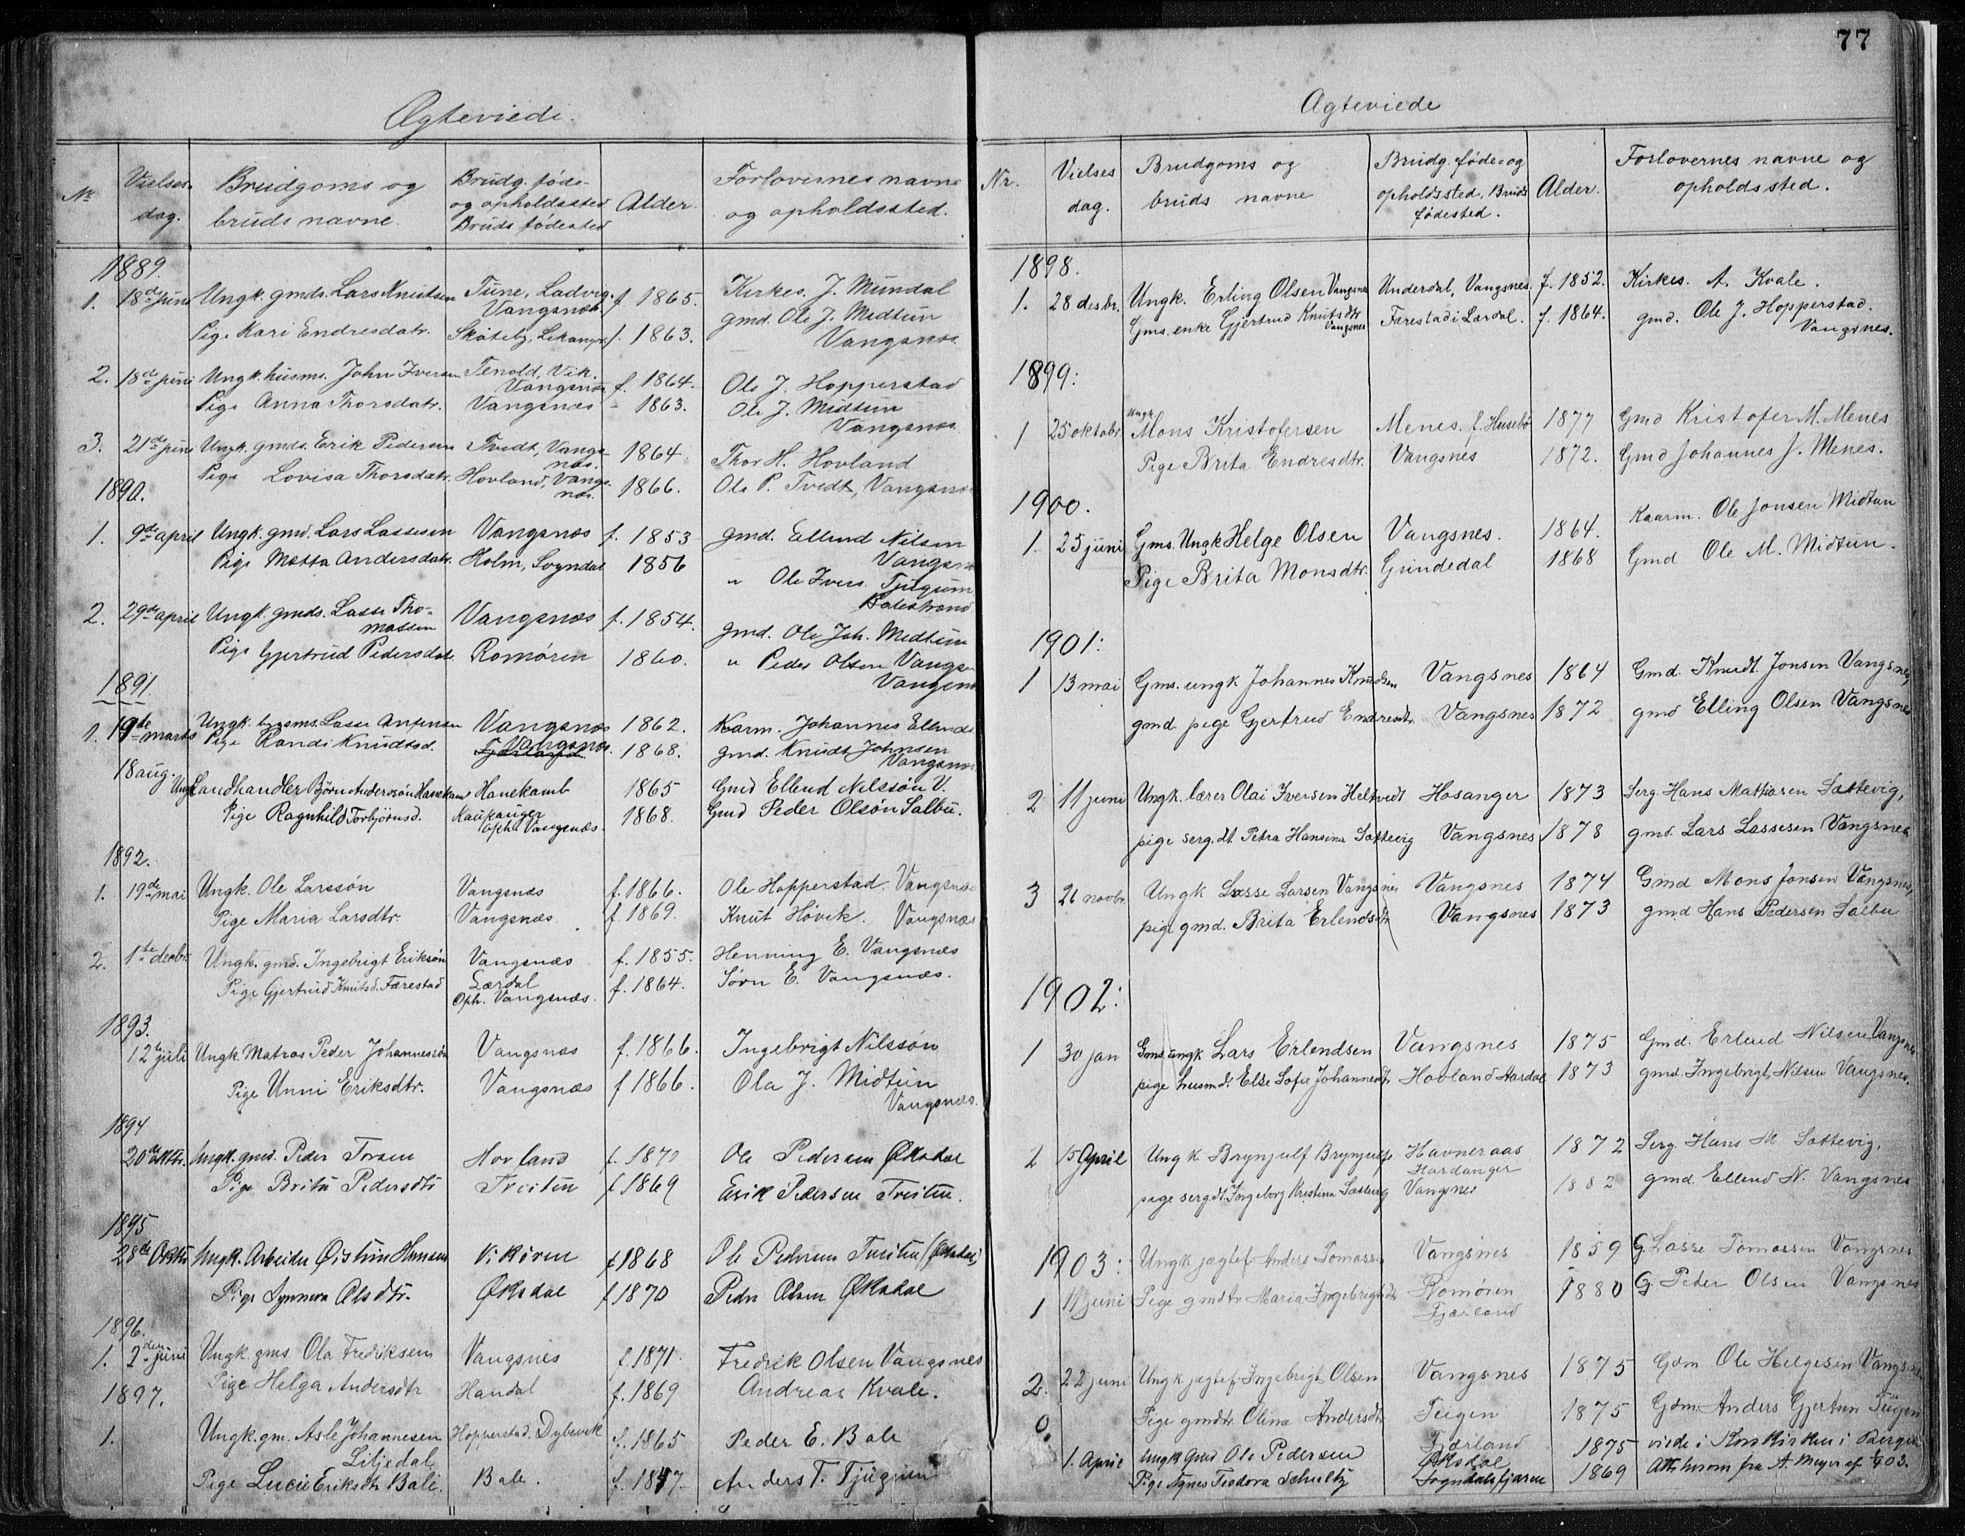 Ægteviede.
No
Vielses-
dag.
Brudgoms og
bruds navne.
Brudg. føde-
og opholdssted
Bruds fødested
Alder.
Forlovernes navne
og opholdssted.
1889.
1. 18de juni Ungk. gmds. Lars Knudsen Tune, Ladvig. f. 1865. Kirkes. J. Mundal
Vangsnæs gmd. Ole J. Midtun
Pige Kari Endresdatr. f. 1863. Vangsnæs
2. 18de juni Ungk. husms. John Iversen Tenold, Vik. f. 1864. Ole J. Hopperstad
Vangsnæs
Pige Anna Thorsdatr. Vangsnæs - 1863. Ole J. Midtun
Vangsnæs.
3. 21de juni Ungk. gmds. Erik Pedersen Tvedt, Vangs- 1864. Thor H. Hovland
næs.
Pige Lovisa Thorsdatr. Hovland, Vangs- 1866. Ole P. Tvedt, Vangsnæs
næs.
1890.
1. 9de april Ungk. gmd. Lars Lassesen Vangsnæs f. 1853 gmd. Ellend Nilsen
Vangsnæs
Pige Metta Andersdatr. Holm, Sogndal 1856 " Ole Ivers. Tjugum
Balestrand
2. 29de april Ungk. gmds. Lasse Tho- Vangsnæs f. 1854. gmd. Ole Joh. Midtun
massen
Pige Gjertrud Pedersdatr. Romøren 1860. " Peder Olsen Vangs
Vangsnæs
1891
1. 19de marts Ungk. Lasse Vangsnæs 1862. Karm. Johannes Ellends
Pige Randi Knudtsd. Vangsnæs. 1868. gmd. Knudt Johnsen
Vangsnæs
18 aug. Ungk Landhandler Bjørn Andersøn Hanekam Hanekamb 1865 Gmd Ellend Nilssøn V.
Pige Ragnhild Torbjørnsd. Kaupanger 1868. Gmd Peder Olsøn Salbu.
oph. Vangsnæs.
1892.
1. 19de mai Ungk. Ole Larssøn Vangsnæs f. 1866. Ole Hopperstad. Vangsnæs
Pige Maria Larsdtr. Vangsnæs. f. 1869. Knut Høvik. Vangsnæs
2. 1ste decbr. Ungk. gmd. Ingebrigt Eriksøn Vangsnæs f. 1855. Henning E. Vangsnæs
Pige Gjertrud Knutsd. Færestad Lærdal f. 1864. Søvn E. Vangsnæs.
Oph. Vangsnæs.
1893.
12te juli Ungk. Matros Peder Johannessøn Vangsnæs f. 1866. Ingebrigt Nilssøn
Pige Unni Eriksdtr. Vangsnæs f 1866. Ola J. Midtun
Vangsnæs.
1894
20de Ungk. gmd. Peder Hovland f. 1870 Ole Pedersen Øksdal
Pige Brita Pedersdtr Treiten f 1869 Erik Pedersen Treiten.
1895
28de Oktbr Ungk. Arbeider Øistein Hansen Vikøren f 1868 Ole Pedersen Treiten (Øksdal)
Pige Synneva Olsdtr. Øksdal f 1870 Peder Olsen Øksdal
1896.
1. 2den juni Ungk. gms. Ola Fredriksen Vangsnes f. 1871. Fredrik Olsen Vangsnes
Pige Helga Andersdtr f. 1869 Andreas Kvale.
1897.
1. Ungk. gm. Asle Johannesen Hopperstad. Dybevik f. 1865 Peder E. Bale
Liljedal
Pige Lucie Eriksdtr Bale. Bale. Anders T. Tjugum
77
Ægteviede
Nr.
Vielses
dag.
Brudgoms og
bruds navne
Brudg. føde- og
opholdssted, Bruds
fødested.
Alder.
Forlovernes navne og
opholdssted.
1898.
1. 28 desbr. Ungk. Erling Olsen Vangsnes Underdal, Vangsnes. f. 1852. Kirkes. A. Kvale.
Gms. enke Gjertrud Knutsdtr Færestad i Lærdal. f. 1864. gmd. Ole J. Hopperstad.
Vangsnes Vangsnes.
1899:
1 25 oktobr. Ungk Mons Kristofersen Menes. f. Husebø 1877 Gmd Kristofer M. Menes
Pige Brita Endresdtr. Vangsnes 1872. Gmd Johannes J. Menes.
1900.
1. 25 juni Gms. Ungk Helge Olsen Vangsnes. 1864. Kaarm. Ole Jonsen Midtun
Pige Brita Monsdtr. Grindedal 1868 Gmd Ole M. Midtun.
1901:
1 13 mai Gms. ungk Johannes Knudsen Vangsnes 1864 Gmd. Knudt Jonsen Vangsnes,
gmd. pige Gjertrud Endresdtr. Vangsnes 1872 gmd Elling Olsen Vangsnes
2 11 juni Ungk. lærer Olai Iversen Heltvedt Hosanger 1873 Serg. Hans Mathisen Sættevig,
pige serg. dt. Petra Hansina Sættevig Vangsnes 1878 gmd. Lars Lassesen Vangsnes
3 26 novbr. Ungk Lasse Larsen Vangsnes Vangsnes 1874 Gmd Mons Jonsen Vangsnes,
pige gmd. Brita Erlendsdtr Vangsnes 1873 gmd Hans Pedersen Salbu
1902:
1 30 jan Gms. ungk Lars Erlendsen Vangsnes 1875 Gmd. Erlend Nilsen Vangsnes
pige husmd. Else Sofie Johannesdtr Hovland Aardal 1873 gmd. Ingebrigt Nilsen Vangsnes.
2 15 April Ungk Brynjulf Brynjulfs Havneraas 1872 Serg. Hans M Sættevig.
Hardanger
pige serg. dt. Ingeborg Kristina Sættevig Vangsnes 1882 gmd. Ellend N. Vangsnes
1903: Ungk jagtef. Anders Tomassen Vangsnes 1859 G. Lasse Tomassen Vangsnes
1 11 juni Pige gmdtr Maria Ingebrigtsdtr Romøren 1880 G Peder Olsen Vangsnes
Fjærland
2. 22 juni Ungk jagtef. Ingebrigt Olsen Vangsnes 1875 Gdm Ole Helgesen Vangsnes
Pige gmdtr Olina Andersdtr Teigen 1875 Gdm. Anders Gjertsen Teigen
Fjærland
0. 1. April Ungk Gmd Ole Pedersen Øksdal 1875 viede i Korskirken i Bergen
Pige Agnes Teodora Schultz Sogndalsfjæren 1869 Att. herom fra A. Meyer af